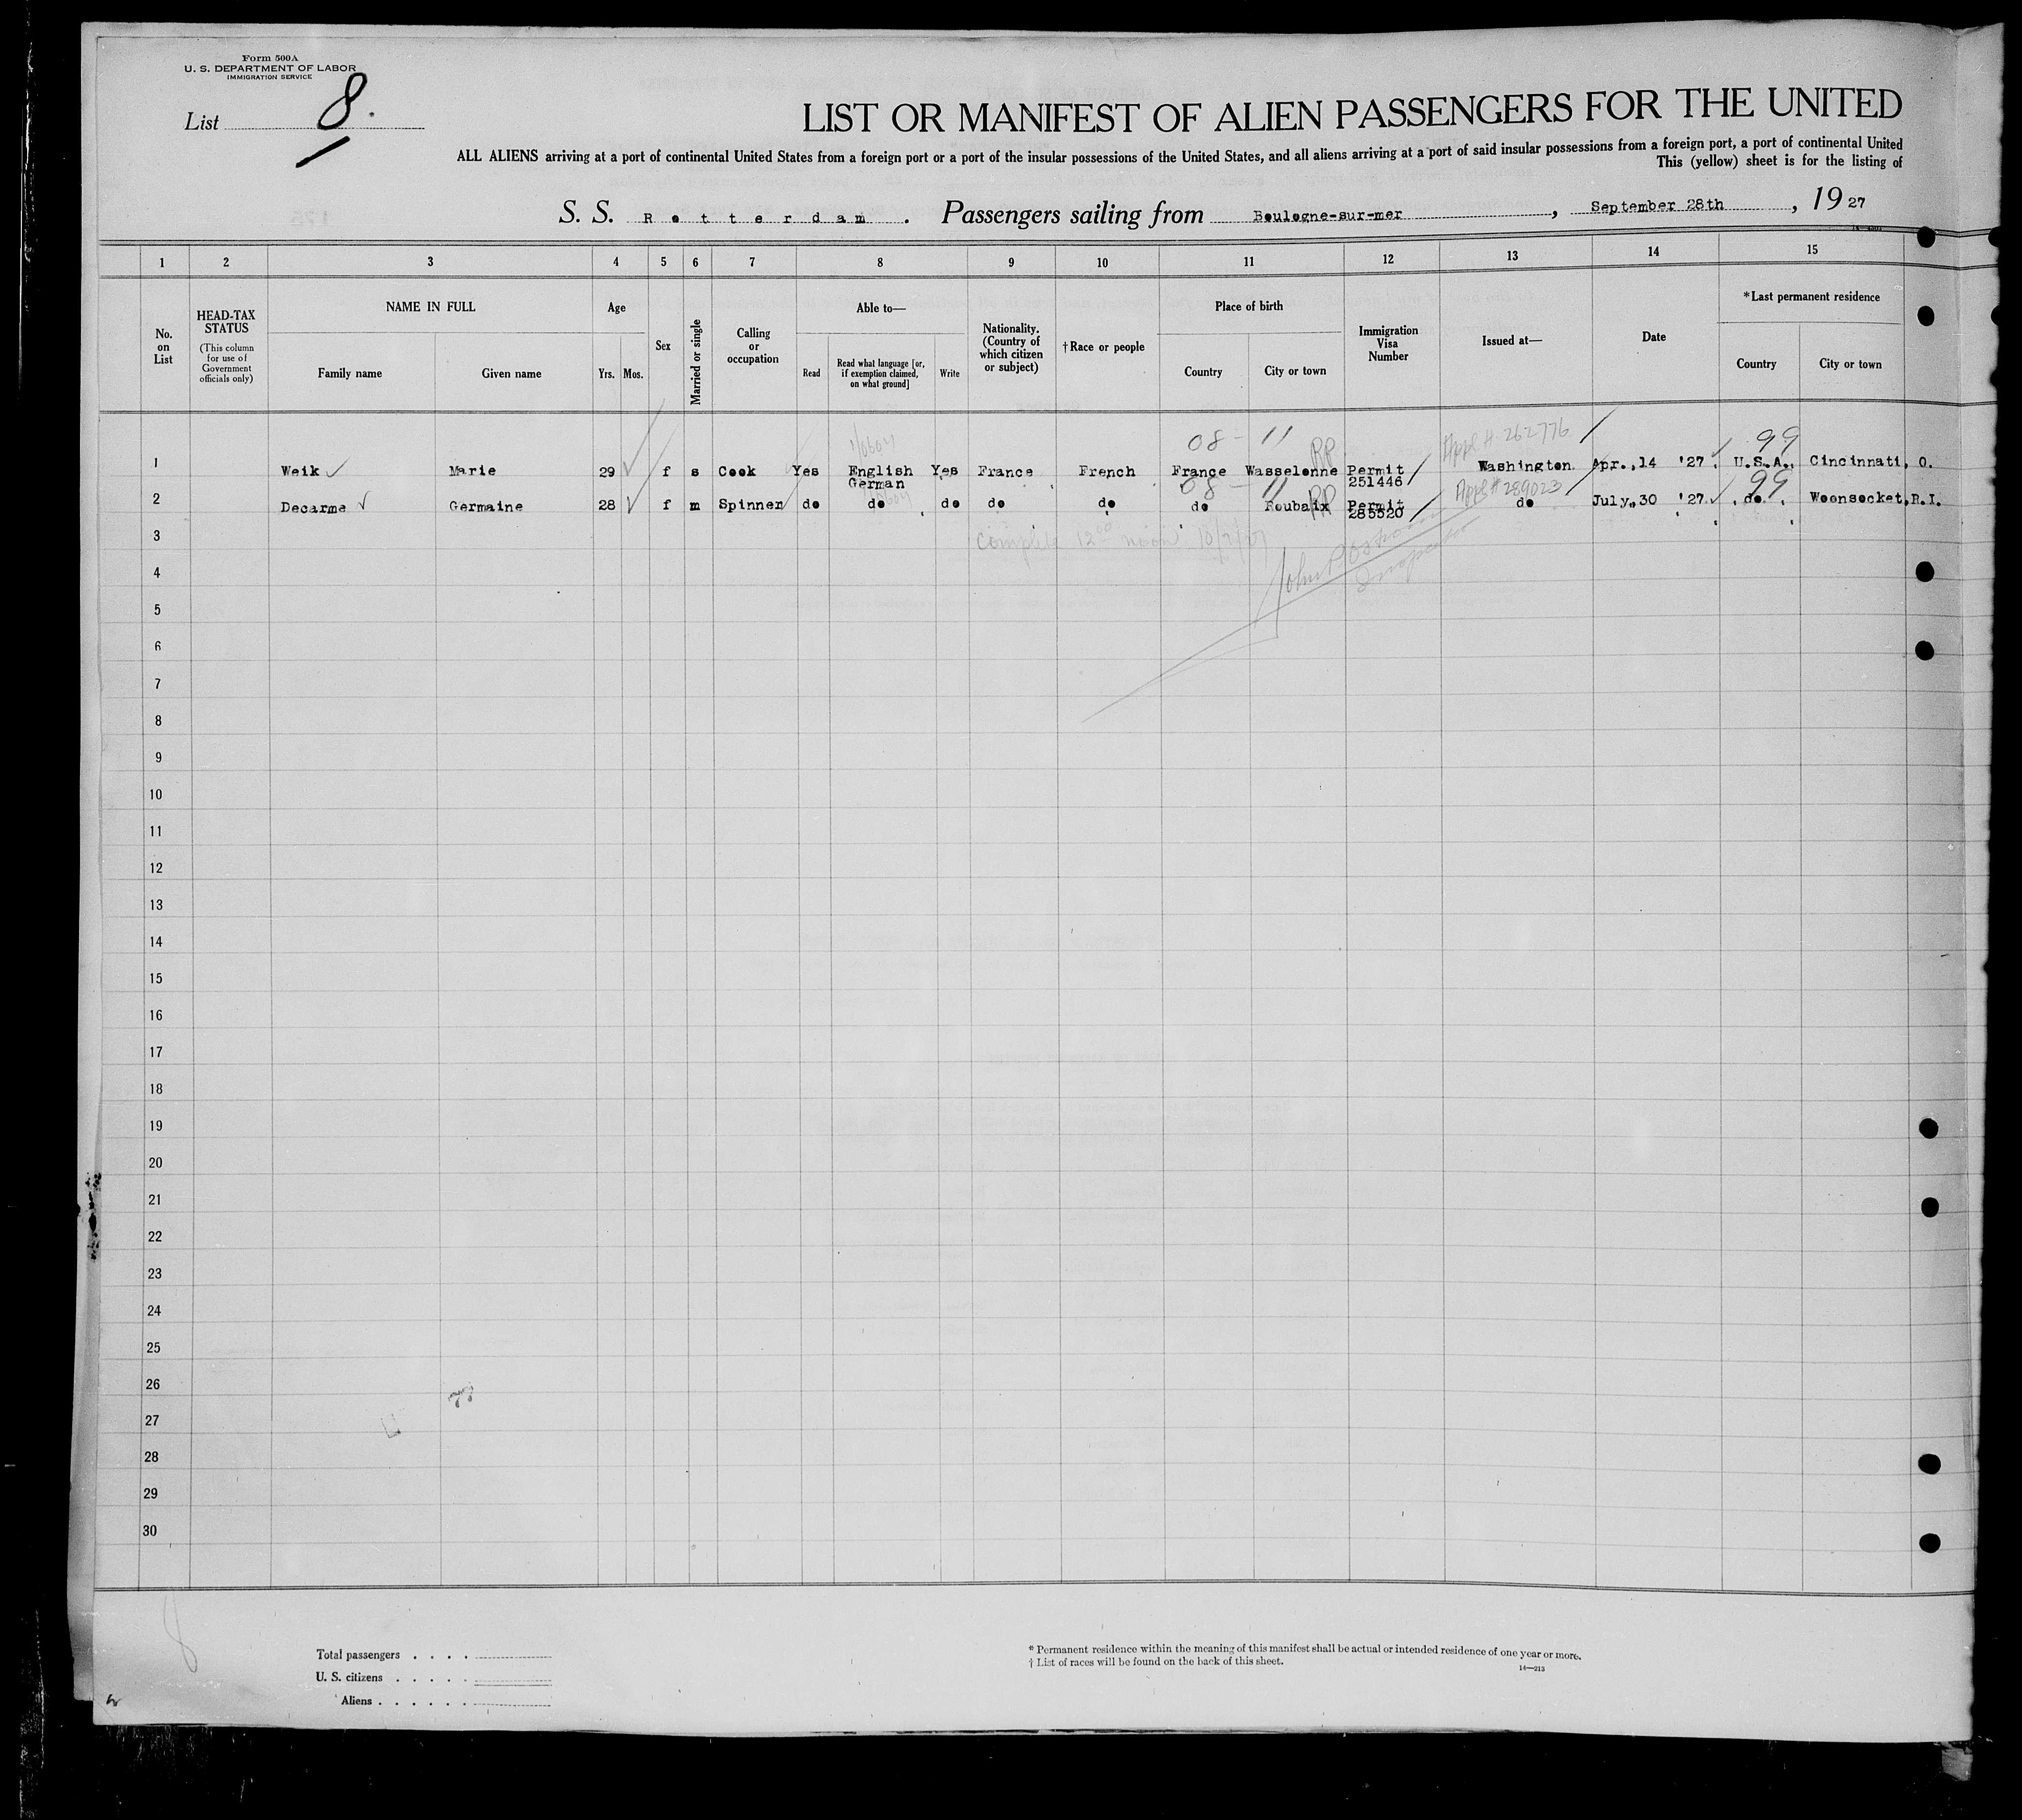 Form 500A
U. S. DEPARTMENT OF LABOR
IMMIGRATION SERVICE
List 8.
LIST OR MANIFEST OF ALIEN PASSENGERS FOR THE UNITED
ALL ALIENS arriving at a port of continental United States from a foreign port or a port of the insular possessions of the United States, and all aliens arriving at a port of said insular possessions from a foreign port, a port of continental United
This (yellow) sheet is for the listing of
S. S. Rotterdam. Passengers sailing from Boulogne-sur-mer, September 28th, 1927
1 2 3 4 5 6 7 8 9 10 11 12 13 14 15
No. on List
HEAD-TAX STATUS
(This column for use of Government officials only)
NAME IN FULL
Family name Given name
Age
Yrs. Mos.
Sex
Married or single
Calling or occupation
Able to—
Read
Read what language [or, if exemption claimed, on what ground]
Write
Nationality. (Country of which citizen or subject)
†Race or people
Place of birth
Country City or town
Immigration Visa Number
Issued at—
Date
*Last permanent residence
Country City or town
08 - 11 PP Appl # 262776 99
1 Weik Marie 29 f s Cook Yes English Yes France French France Wasselonne Permit Washington Apr.,14 '27. U.S.A., Cincinnati, O.
German 251446
08 - 11 PP Appl # 289023 99
2 Decarme Germaine 28 f m Spinner do do do do do do Roubaix Permit do July,30 '27. do. Woonsocket,R.I.
285520
3 complete 12 00 noon 10/7/27
John P.
4 Inspector
5
6
7
8
9
10
11
12
13
14
15
16
17
18
19
20
21
22
23
24
25
26
27
28
29
30
8
Total passengers . . . .
U. S. citizens . . . . .
Aliens . . . . . .
* Permanent residence within the meaning of this manifest shall be actual or intended residence of one year or more.
† List of races will be found on the back of this sheet.
14—213